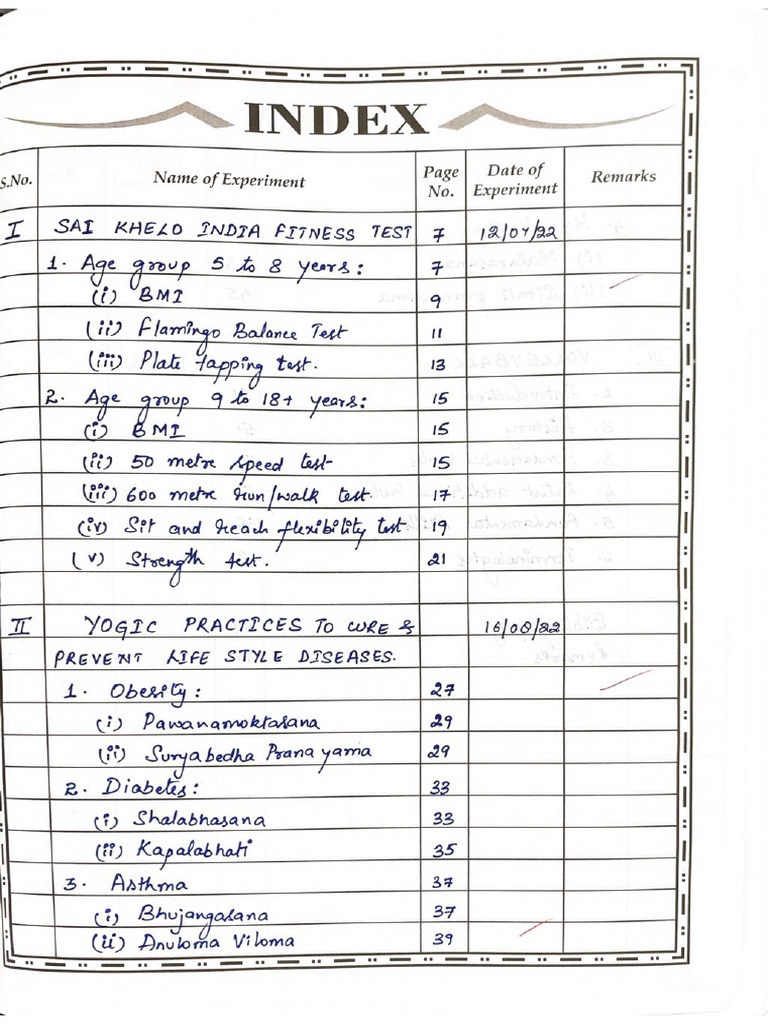 INDEX
S.No. Name of Experiment Page No. Date of Experiment Remarks
I SAI KHELO INDIA FITNESS TEST 7 12/07/22
1. Age group 5 to 8 years: 7
(i) BMI 9
(ii) Flamingo Balance Test 11
(iii) Plate tapping test. 13
2. Age group 9 to 18+ years: 15
(i) BMI 15
(ii) 50 metre speed test 15
(iii) 600 metre run/walk test 17
(iv) Sit and reach flexibility test 19
(v) Strength test. 21
II YOGIC PRACTICES TO CURE & 16/08/22
PREVENT LIFE STYLE DISEASES.
1. Obesity: 27
(i) Pawanamoktasana 29
(ii) Suryabedha Pranayama 29
2. Diabetes: 33
(i) Shalabhasana 33
(ii) Kapalabhati 35
3. Asthma 37
(i) Bhujangasana 37
(ii) Anuloma Viloma 39